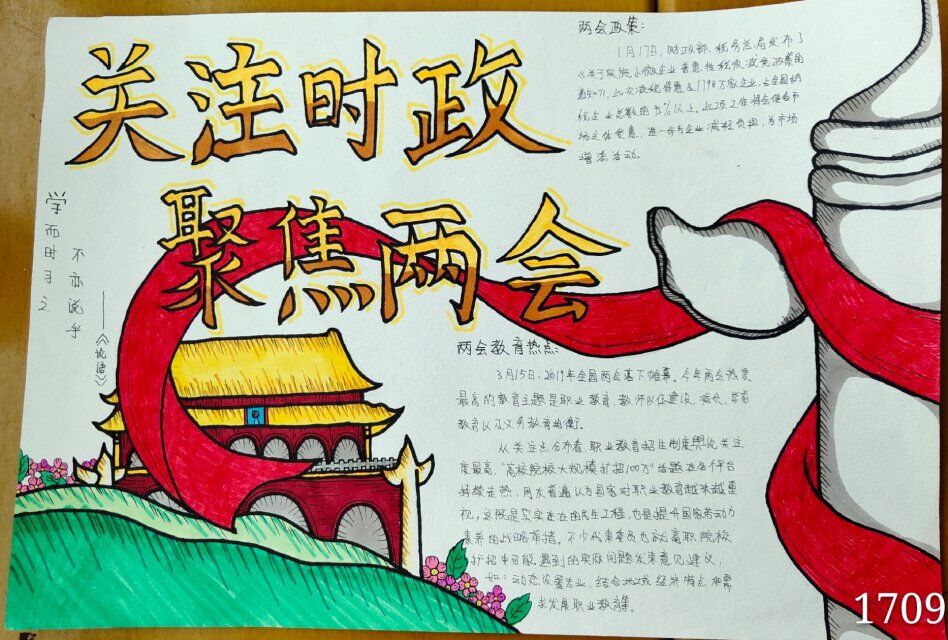 关注时政
聚焦两会
学而时习之
不亦说乎
——《论语》
两会政策：
1月17日，财政部、税务总局发布了
《关于实施小微企业普惠性税收减免政策的
通知》，此次减税将惠及1798万家企业，占全国纳
税企业总数的95%以上，此项工作将会使
场主体受惠，进一步为企业减轻负担，为市场
增添活动。
两会教育热点：
3月15日，2019年全国两会落下帷幕。今年两会热度
最高的教育主题是职业教育、教师队伍建设、减负、学前
教育以及义务教育均衡。
从关注点分布看，职业教育招生制度舆论关注
度最高，"高校院校大规模扩招100万"话题在各个平台
持续走热，网友普遍认为国家对职业教育越来越重
视，这既是实实在在的民生工程，也是提升国家劳动力
素养的战略举措。不少代表委员也就高职院校
扩招中可能遇到的实际问题发表意见建议，
如：动态设置专业，结合地域经济特点和需
求发展职业教育等。
1709